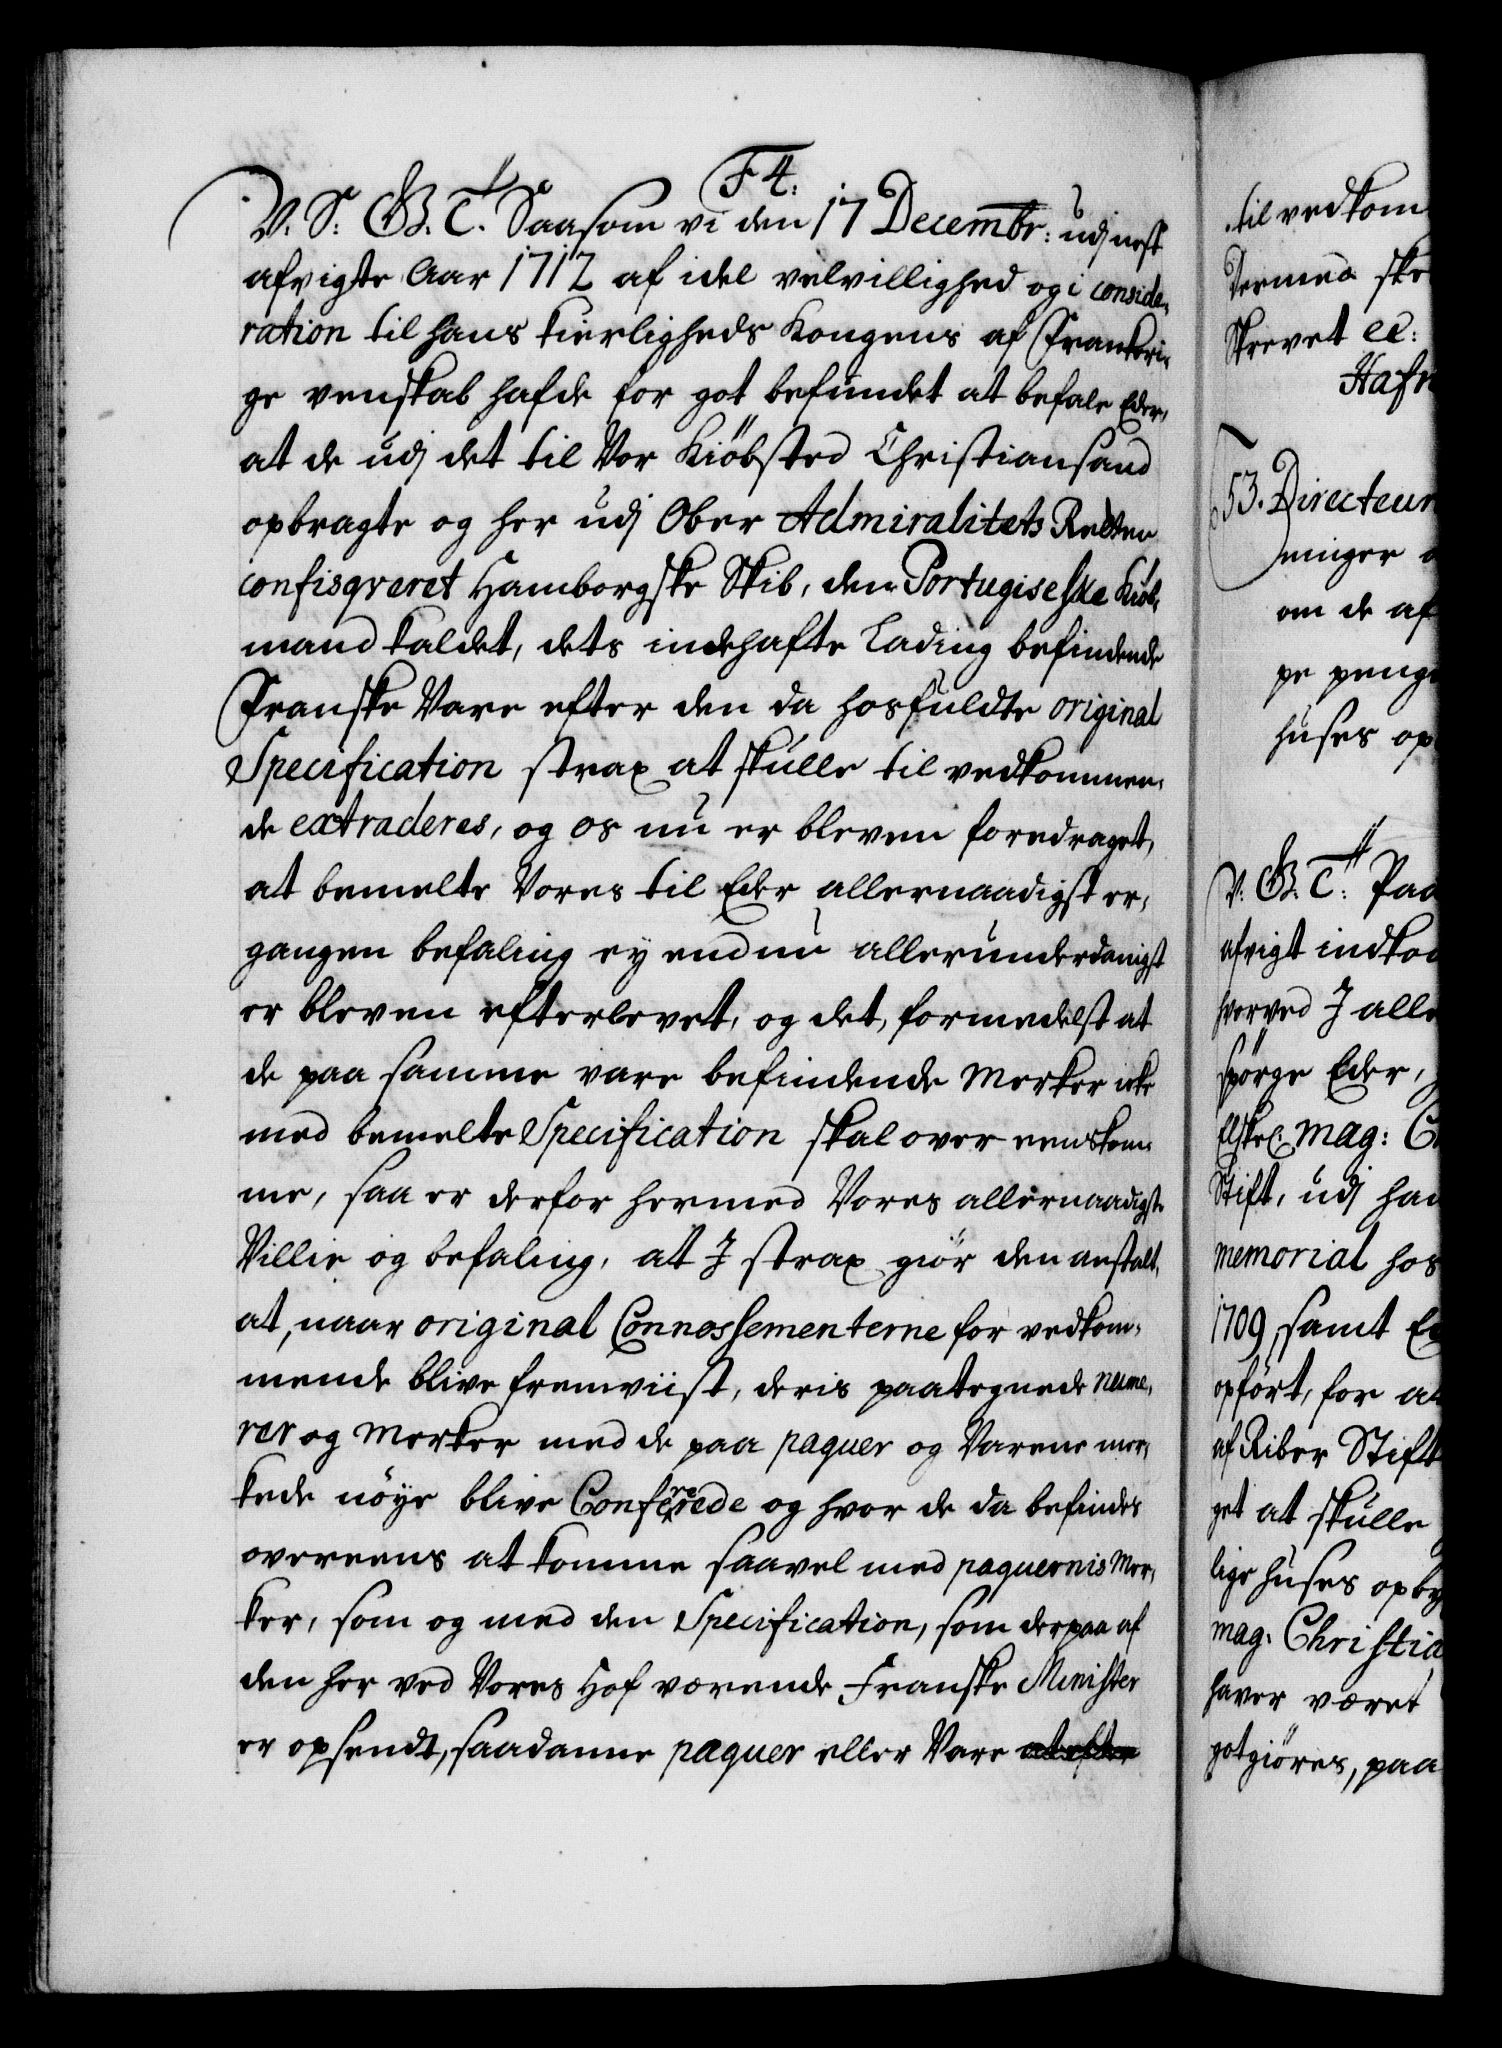 F 4:
V. S: G. T. Saasom vi den 17 Decembr: udj nest
afvigte Aar 1712 af idel velvillighed og i conside,
ration til hans kierligheds Kongens af Frankeri,
ge venskab hafde for got befundet at befale Eder,
at de udj det til Vor Kiöbsted Christiansand
opbragte og her udj Ober Admiralitets Retten
confisqveret Hamborgske Skib, den Portugiseske Kiöb,
mand kaldet, dets indehafte Lading befindende
Franske Vare efter den da hosfuldte original
Specification strax at skulle til vedkommen,
de extraderes, og os nu er bleven foredraget,
at bemelte Vores til Eder allernaadigst er,
gangen befaling ey endnu allerunderdanigst
er bleven efterlevet, og det, formedelst at
de paa samme vare befindende Merker icke
med bemelte Specification skal over eenskom,
me, saa er derfor hermed Vores allernaadigste
Villie og befaling, at I strax giör den anstalt,
at, naar original Connossementerne for vedkom,
mende blive fremviist, deris paategnede nume,
rer og Merker med de paa paquer og Varene mer,
kede nöye blive Confererede og hvor de da befindes
overeens at komme saavel med paquernis Mer,
ker, som og med den Specification, som derpaa af
den her ved Vores Hof værende Franske Minister
er opsendt, saadanne paquer eller Vare at efter
til vedkom
dermed ske
Skrevet etc:
Hafn
53. Directeur
ninger
om de af
pe penge
huses op
V: G. T: Paa
afvigt indkom
hvorved I alle
spörge Eder,
Elskel: Mag: C
Stift, udj han
memorial hos
1709, samt E
opfört, for at
af Riber Stift
get at skulle
lige huses opby
mag. Christia
haver været
gotgiöres, paa